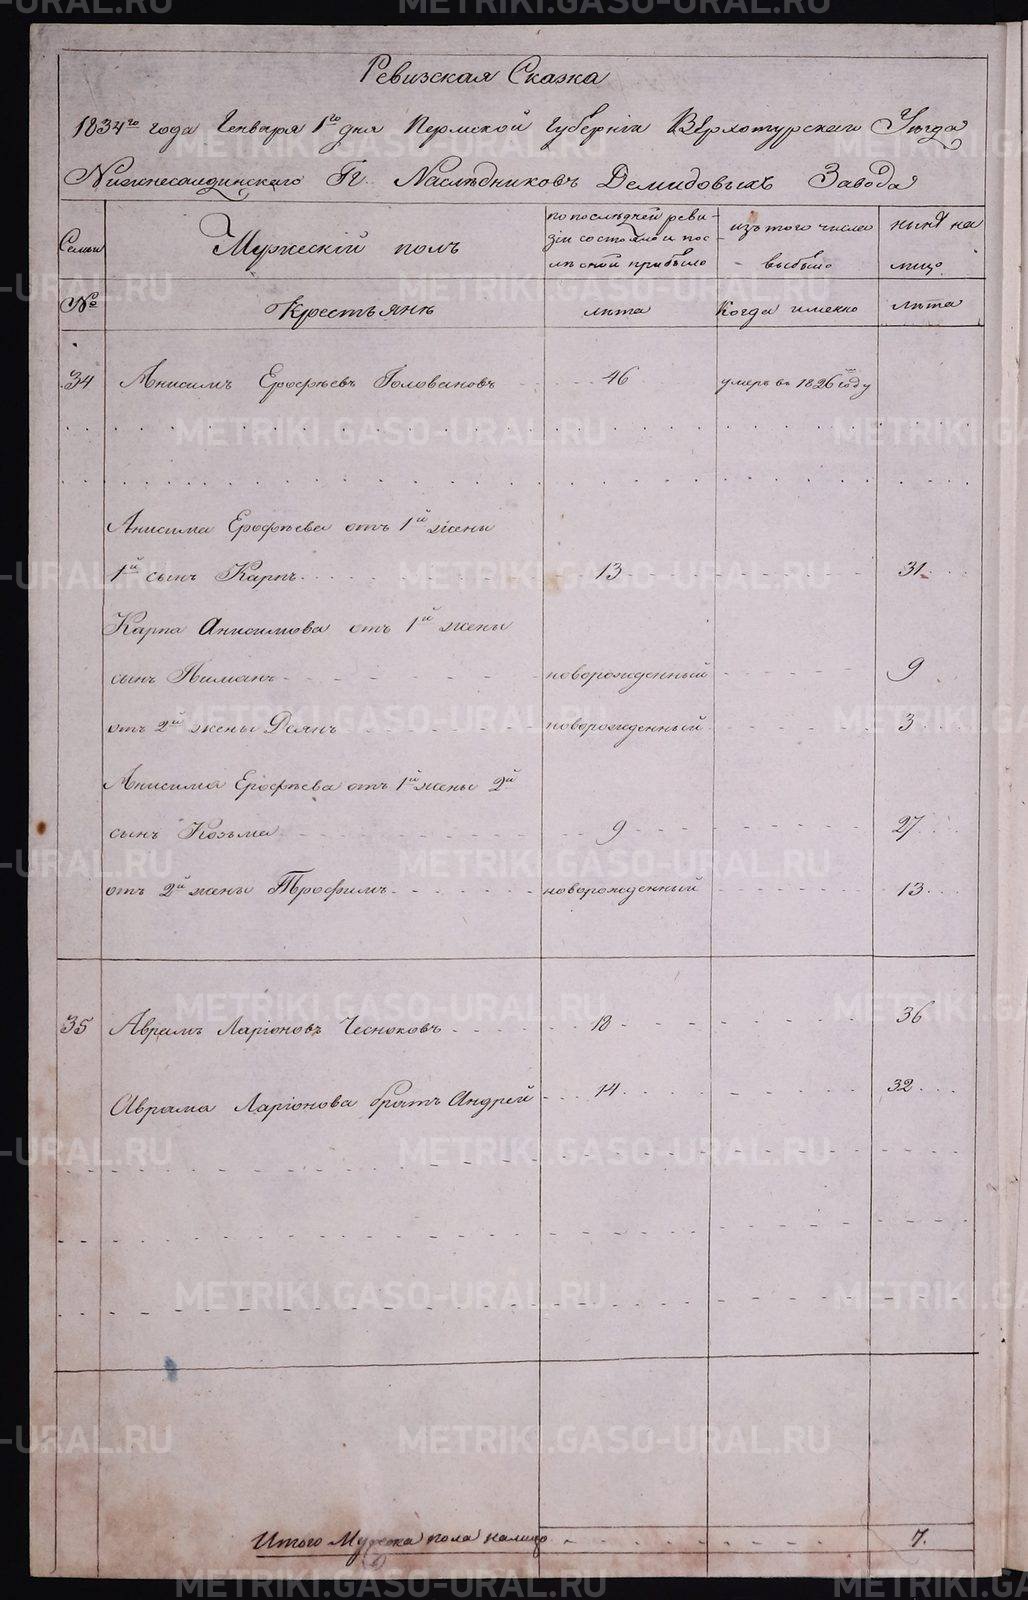 Ревизская Сказка
1834го года Генваря 1го дня Пермской Губернiи Верхотурскаго Уѣзда
Нижнесалдинскаго Гг. Наслѣдниковъ Демидовыхъ Завода
Семьи
Мужескiй полъ
по послѣдней реви-
зiи состояло и пос
лѣ оной прибыло
изъ того числа
выбыло
нынѣ на
лицо
№
Крестьянъ
лѣта
Когда именно
лѣта
34 Анисимъ Ерофѣевъ Головановъ 46 умеръ въ 1826 году
Анисима Ерофѣева отъ 1й жены
1й сынъ Карпъ 13 31
Карпа Анисимова отъ 1й жены
сынъ Пиманъ новорожденный 9
отъ 2й жены Деянъ новорожденный 3
Анисима Ерофѣева отъ 1й жены 2й
сынъ Козьма 9 27
отъ 2й жены Трофимъ новорожденный 13
35 Аврамъ Ларiоновъ Чесноковъ 18 36
Аврама Ларiонова братъ Андрей 14 32
Итого Мужска пола налицо 7.
METRIKI.GASO-URAL.RU